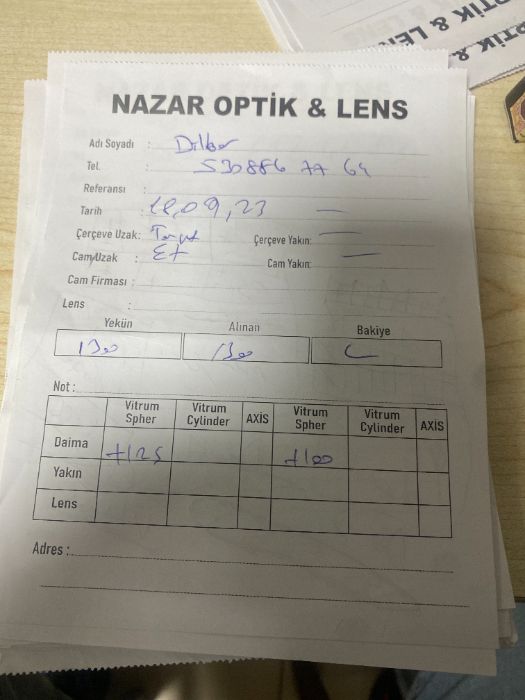 NAZAR OPTİK & LENS
Adı Soyadı : Dilber
Tel. : 530 886 77 64
Referansı :
Tarih : 18,09,23 —
Çerçeve Uzak: Çerçeve Yakın: —
Cam/Uzak : Cam Yakın: —
Cam Firması :
Lens :
Yekün Alınan Bakiye
1300 1300
Not :
Vitrum Spher Vitrum Cylinder AXİS Vitrum Spher Vitrum Cylinder AXİS
Daima +125 +100
Yakın
Lens
Adres :